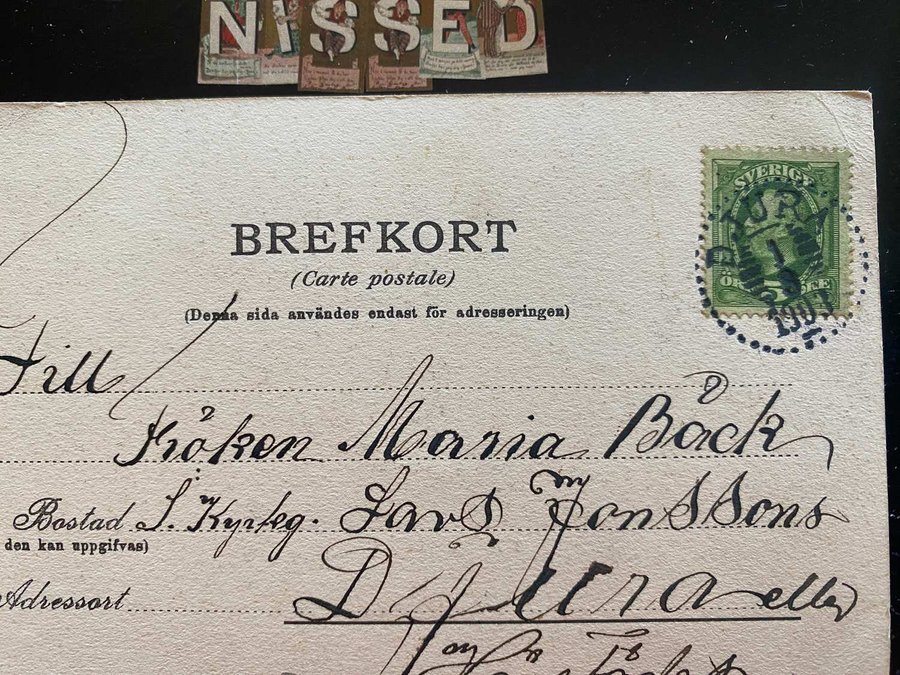 NISSED
BREFKORT
(Carte postale)
(Denna sida användes endast för adresseringen)
SVERIGE
DJURA
1
1903
Till
Fröken Maria Bäck
Bostad S. Kyrkog. Lars Jonssons
den kan uppgifvas)
Adressort Djura eller